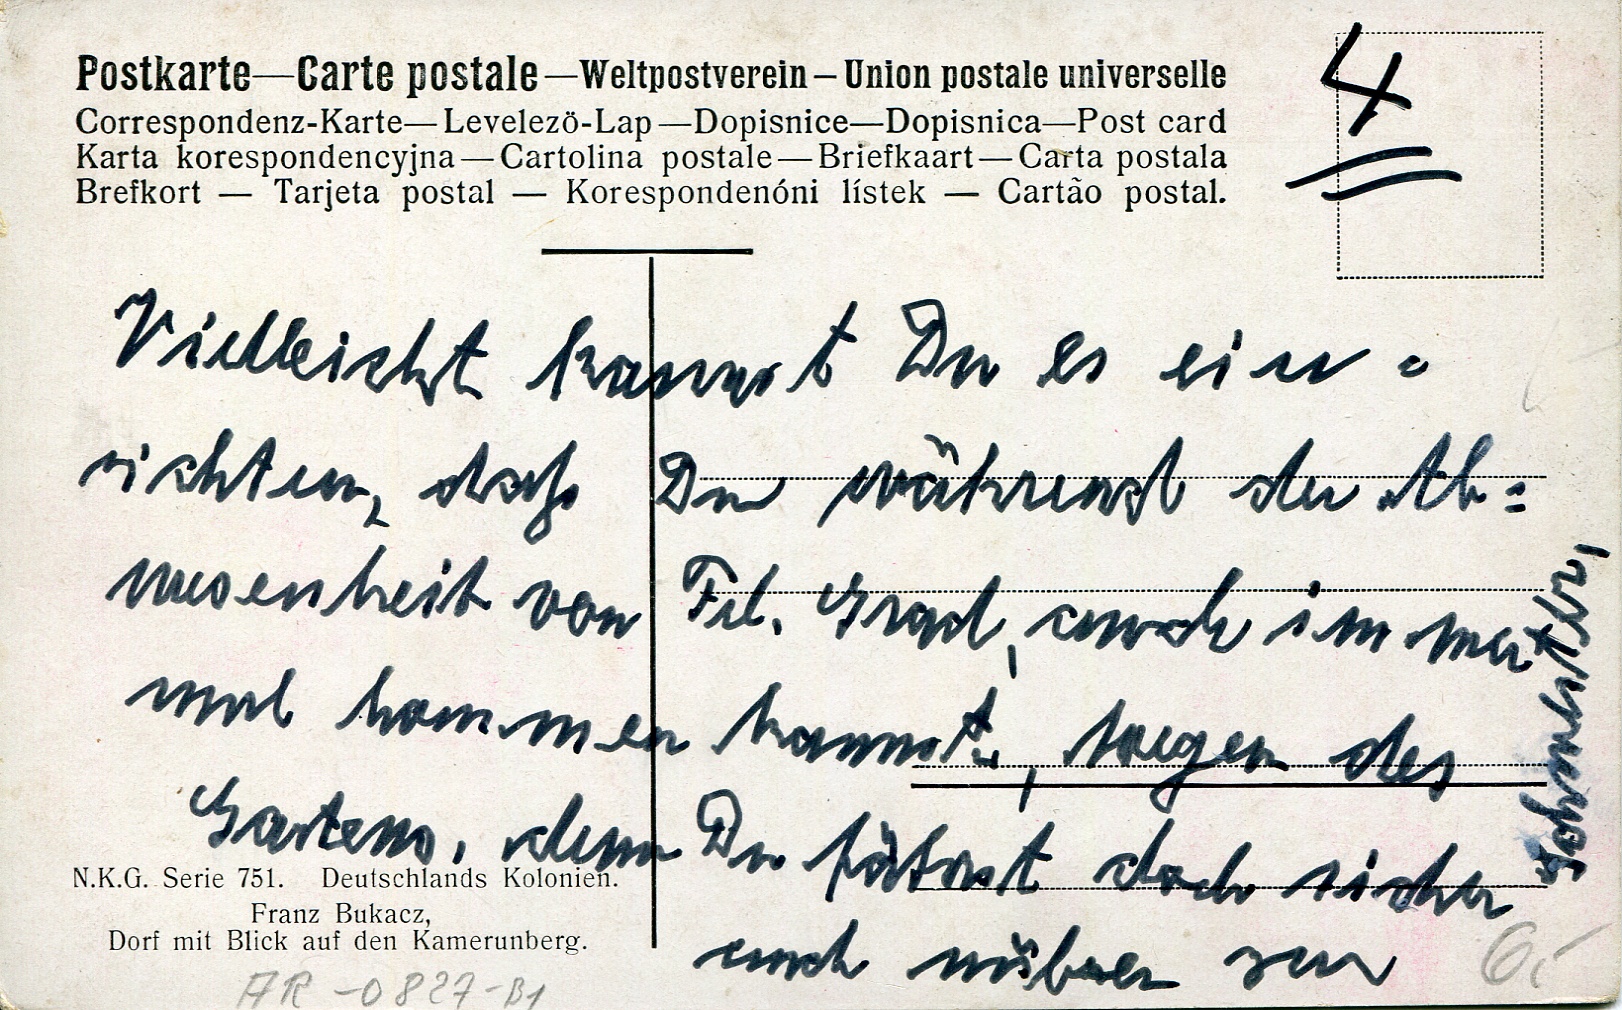 Postkarte—Carte postale—Weltpostverein—Union postale universelle
Correspondenz-Karte—Levelezö-Lap—Dopisnice—Dopisnica—Post card
Karta korespondencyjna—Cartolina postale—Briefkaart—Carta postala
Brefkort — Tarjeta postal — Korespondenóni lístek — Cartão postal.
4
Vielleicht kannst Du es ein=
richten, daß Du während der Ab=
wesenheit von Frl. Grad, auch immer
mal kommen kannst, wegen des
Gartens, denn Du fährst doch sicher
auch nüber zur
N.K.G. Serie 751. Deutschlands Kolonien.
Franz Bukacz,
Dorf mit Blick auf den Kamerunberg.
AR-0827-B1